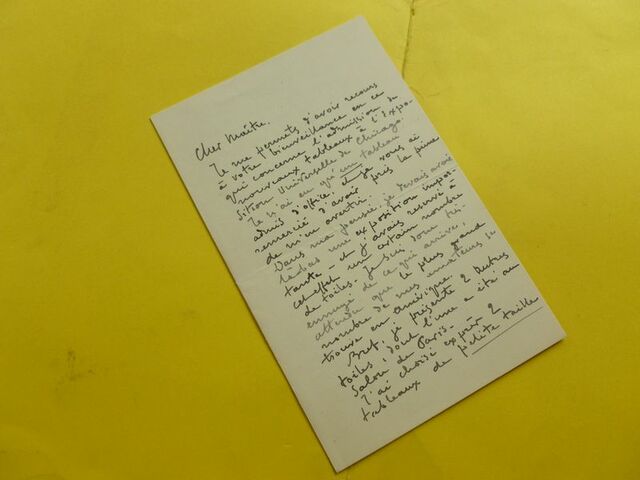 Cher Maître.
Je me permets d'avoir recours
à votre bienveillance en ce
qui concerne l'admission de
nouveaux tableaux à l'Expo-
sition Universelle de Chicago.
Je n'ai eu qu'un tableau
admis d'office, et je vous ai
remercié d'avoir pris la peine
de m'en avertir.
Dans ma pensée, je devais avoir
là-bas une exposition impor-
tante - et j'avais réservé à
cet effet un certain nombre
de toiles. Je suis donc très
ennuyé de ce qui arrive,
attendu que le plus grand
nombre de mes amateurs se
trouve en amérique.
Bref, je présente 2 autres
toiles, dont l'une a été au
Salon de Paris -
J'ai choisi exprès 2
tableaux de petite taille